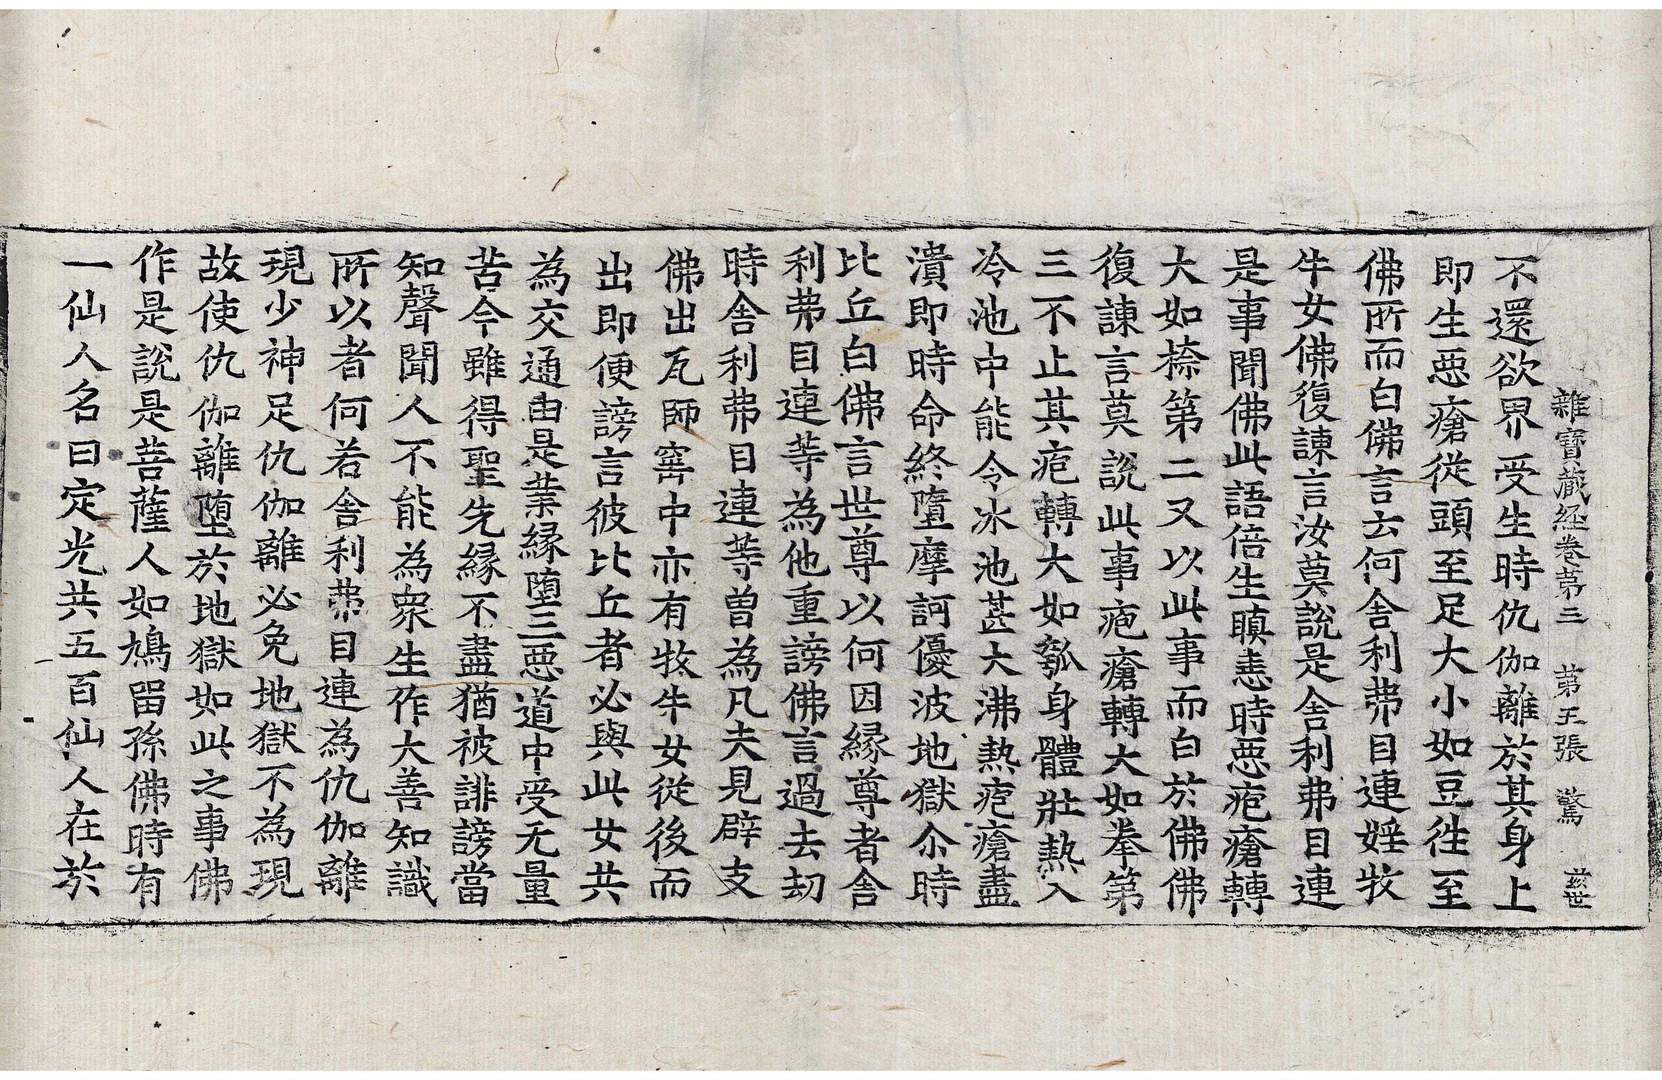 雜寶藏經卷第三 第五張 驚 益世
不還欲界受生時仇伽離於其身上
即生惡瘡從頭至足大小如豆徃至
佛所而白佛言云何舍利弗目連婬牧
牛女佛復諫言汝莫說是舍利弗目連
是事聞佛此語倍生瞋恚時惡疱瘡轉
大如㮈第二又以此事而白於佛佛
復諫言莫說此事疱瘡轉大如拳第
三不止其疱轉大如瓠身體壯熱入
冷池中能令冰池甚大沸熱疱瘡盡
潰即時命終墮摩訶優波地獄尒時
比丘白佛言世尊以何因緣尊者舍
利弗目連等為他重謗佛言過去劫
時舍利弗目連等曾為凡夫見辟支
佛出瓦師窯中亦有牧牛女從後而
出即便謗言彼比丘者必與此女共
為交通由是業緣墮三惡道中受无量
苦今雖得聖先緣不盡猶被誹謗當
知聲聞人不能為眾生作大善知識
所以者何若舍利弗目連為仇伽離
現少神足仇伽離必免地獄不為現
故使仇伽離墮於地獄如此之事佛
作是說是菩薩人如鳩留孫佛時有
一仙人名曰定光共五百仙人在於